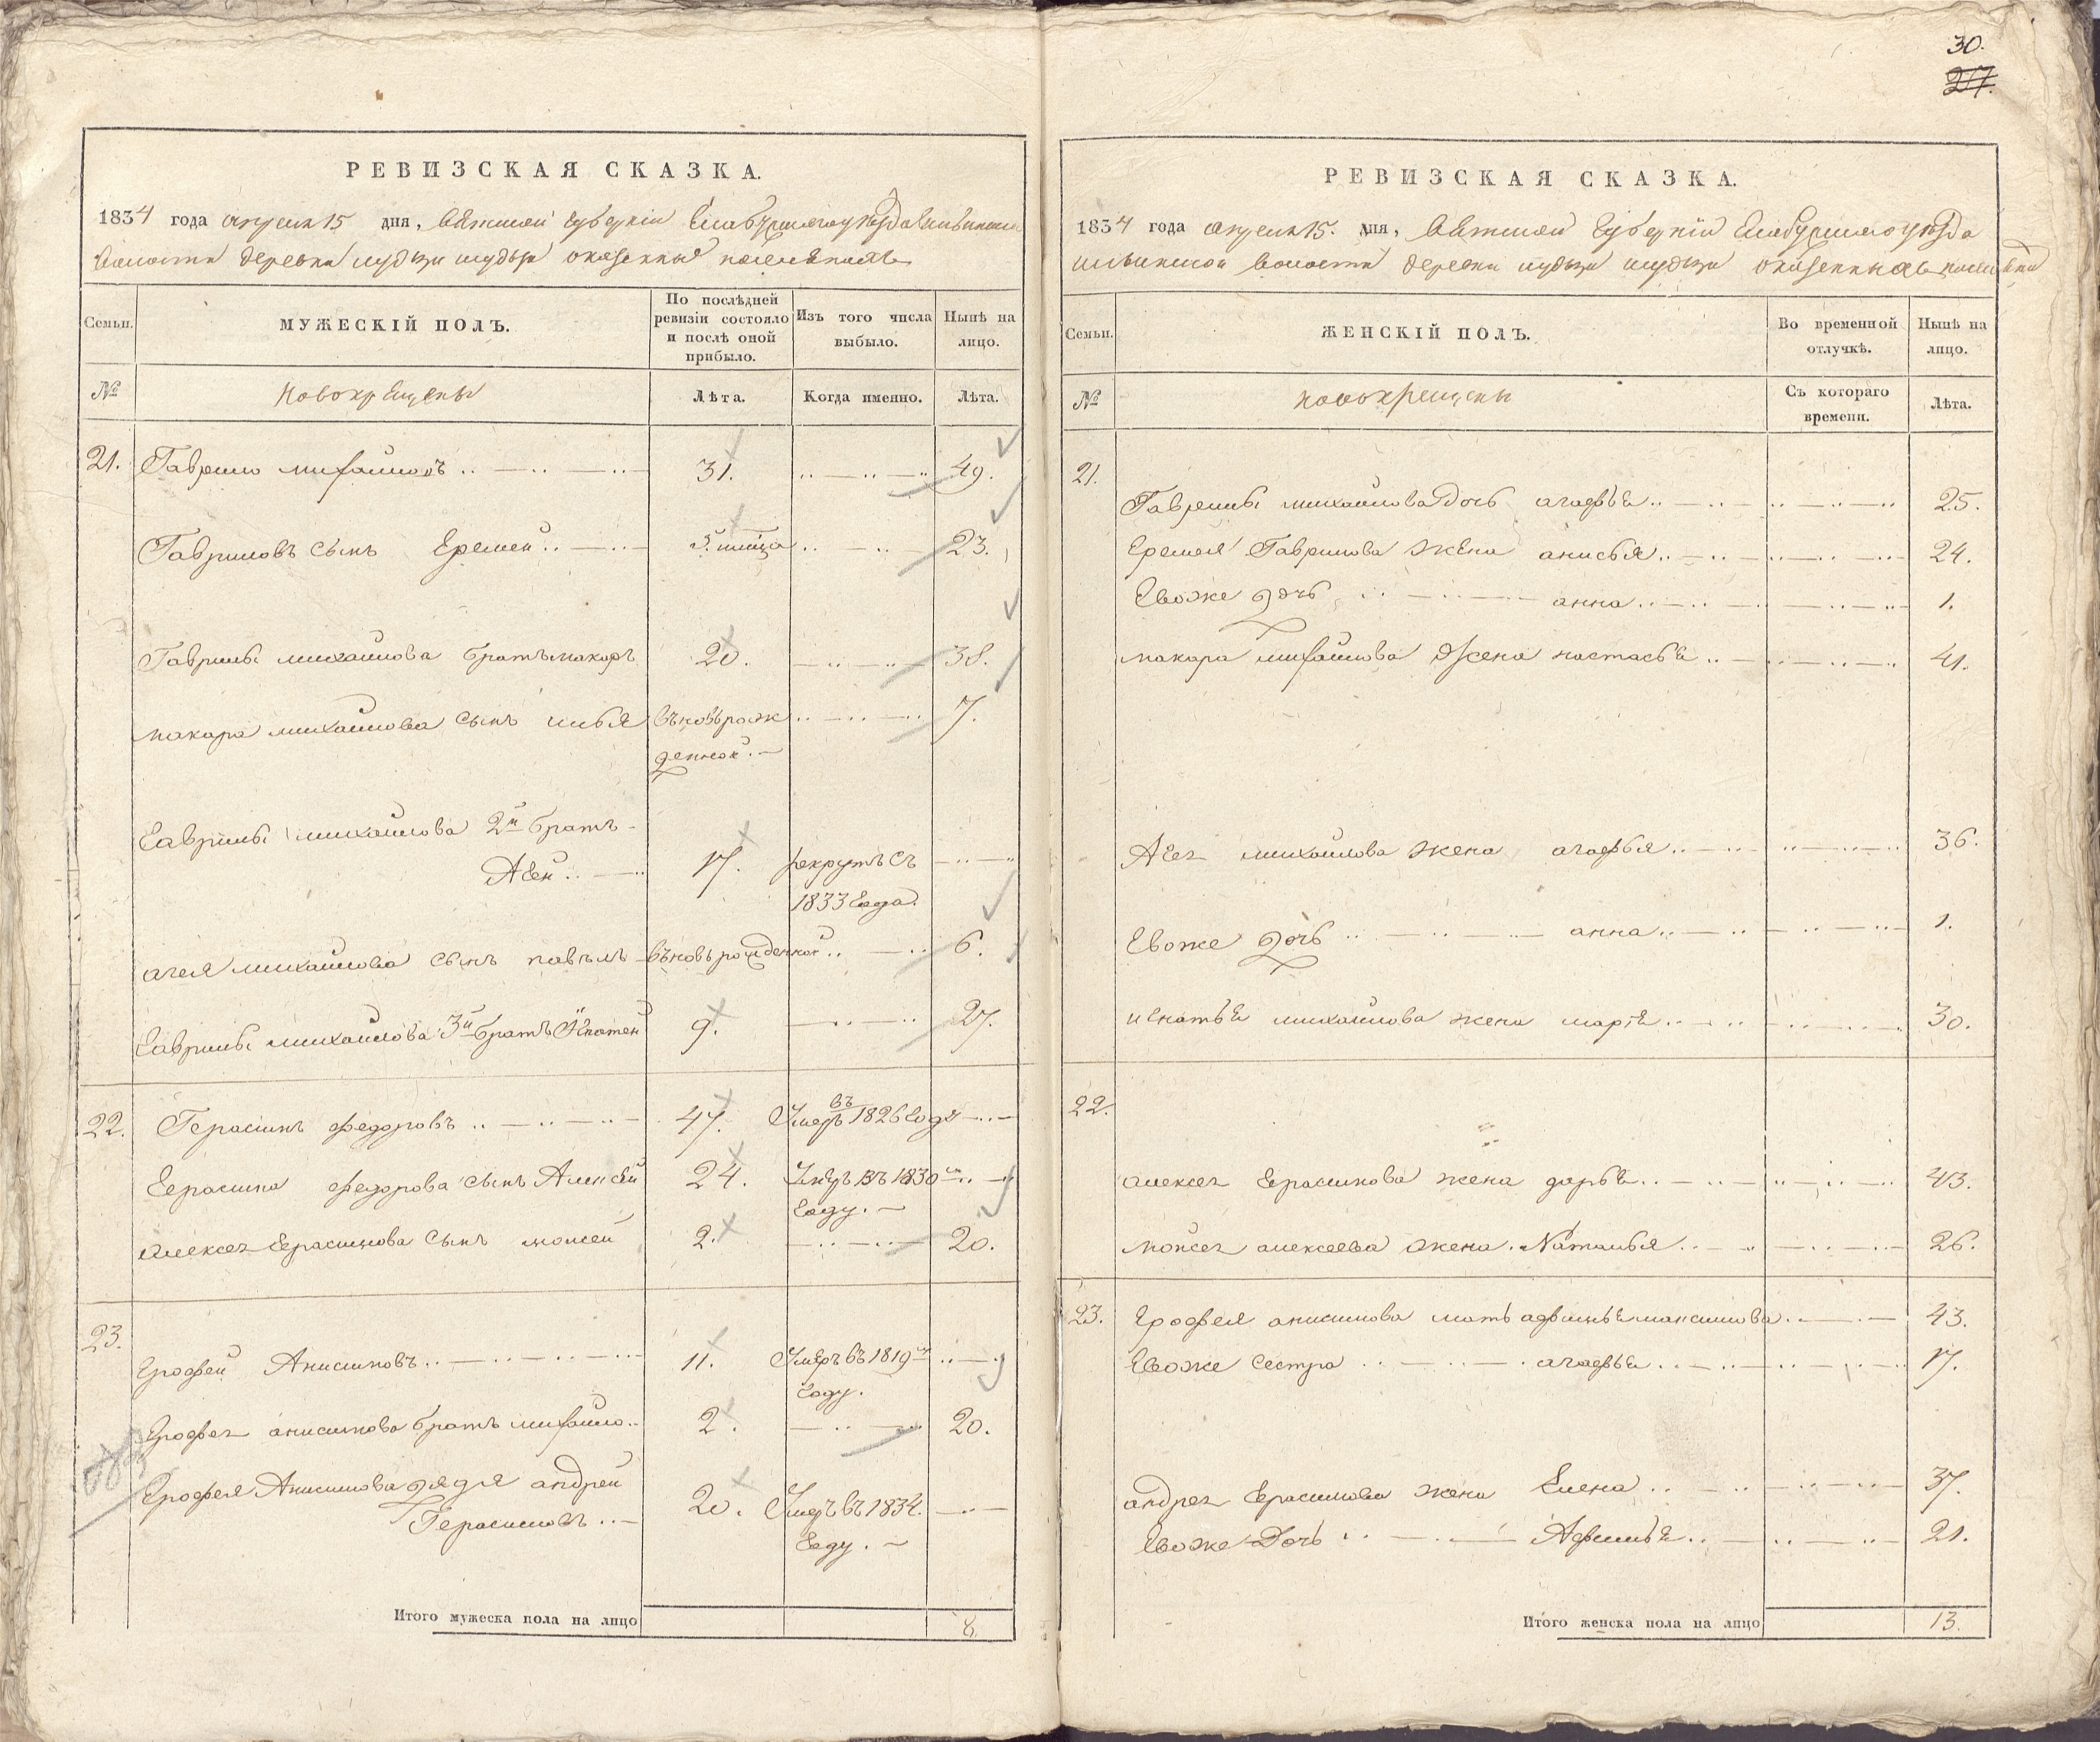 30.
27.
РЕВИЗСКАЯ СКАЗКА.
1834 года апреля 15 дня, Вятской Губернiи Елабужскаго уезда Ильинской
Волости деревни казенныхъ
Семьи.
МУЖЕСКIЙ ПОЛЪ.
По послѣдней ревизiи состояло и послѣ оной прибыло.
Изъ того числа выбыло.
Нынѣ на лицо.
№
Новокрещены
Лѣта.
Когда именно.
Лѣта.
21. Гаврило михайловъ 31. 49.
Гавриловъ сынъ Еремей 5. 23.
Гаврилы михайлова братъ макаръ 20. 38.
макара михайлова сынъ илья въновь рож 7.
денной.
Гаврилы михайлова 2й братъ
Агей 17. рекрутъ съ
1833 Года.
агея михайлова сынъ павелъ въновь рожденной 6.
Гаврилы михайлова 3й братъ Игнатей 9. 27.
22. Герасимъ федоровъ 47. Умеръ въ 1826 Году
Герасима федорова сынъ Алексей 24. Умеръ въ 1830м
Году.
Алексея Герасимова сынъ мойсей 2. 20.
23.
Ерофей Анисимовъ 11. Умеръ въ 1819м
Году.
Ерофея анисимова братъ михайло 2. 20.
Ерофея Анисимова дядя андрей
Герасимовъ 20. Умеръ въ 1834.
Году.
Итого мужеска пола на лицо 8.
РЕВИЗСКАЯ СКАЗКА.
1834 года апреля 15. дня, Вятской Губернiи Елабужскаго уезда
ильинской волости деревни казенныхъ
Семьи.
ЖЕНСКIЙ ПОЛЪ.
Во временной отлучкѣ.
Нынѣ на лицо.
№
новокрещены
Съ котораго времени.
Лѣта.
21.
Гаврилы михайлова дочь агафья 25.
Еремея Гаврилова жена анисья 24.
Евоже дочь анна 1.
макара михайлова жена настасья 41.
Агея михайлова жена агафья 36.
Евоже дочь анна 1.
игнатья михайлова жена марья 30.
22.
алексея Герасимова жена дарья 43.
мойсея алексеева жена Наталья 26.
23. Ерофея анисимова мать афимья максимова 43.
Евоже сестра агафья 17.
андрея Герасимова жена Елена 37.
Евоже Дочь Афимья 21.
Итого женска пола на лицо 13.